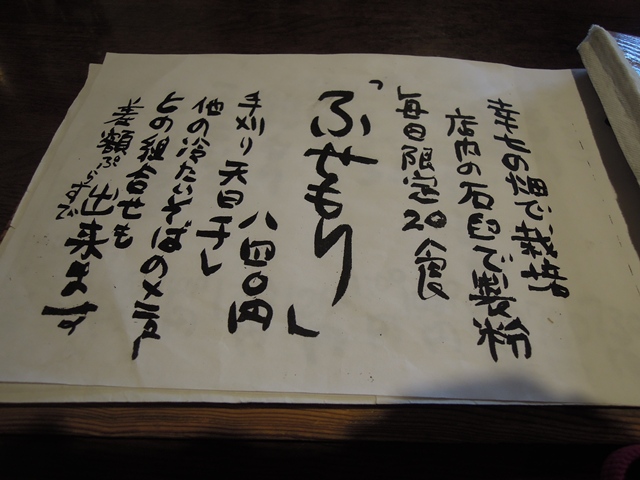 幸七の畑で栽培
店内の石臼で製粉
「毎日限定20食
「ふせもり」
八四〇円
手刈り 天日干し
他の冷たいそばのメニュー
との組合せも
差額ぷらすで出来ます